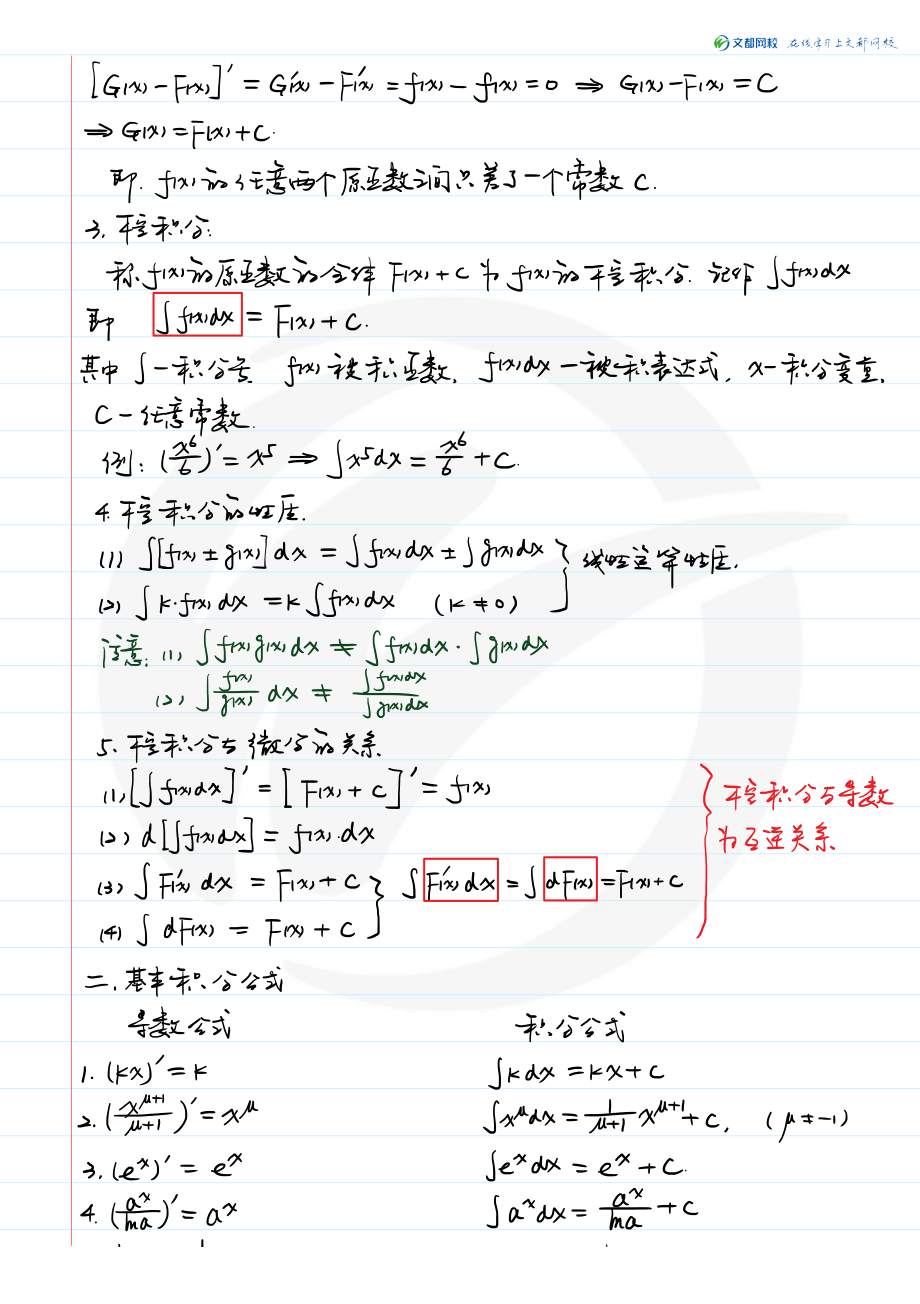 文都网校 在线学习上文都网校
[G(x)-F(x)]' = G'(x)-F'(x) = f(x)-f(x)=0 ⇒ G(x)-F(x)=C
⇒ G(x)=F(x)+C.
即. f(x)的任意两个原函数之间只差了一个常数C.
3. 不定积分:
称f(x)的原函数的全体F(x)+C为f(x)的不定积分. 记作 ∫f(x)dx
即 ∫f(x)dx = F(x)+C.
其中 ∫—积分号 f(x)被积函数, f(x)dx—被积表达式, x—积分变量,
C—任意常数.
例: (x⁶/6)' = x⁵ ⇒ ∫x⁵dx = x⁶/6 + C.
4. 不定积分的性质.
(1) ∫[f(x)±g(x)]dx = ∫f(x)dx ± ∫g(x)dx
(2) ∫k·f(x)dx = k∫f(x)dx (k≠0)
线性运算性质.
注意: (1) ∫f(x)g(x)dx ≠ ∫f(x)dx·∫g(x)dx
(2) ∫f(x)/g(x) dx ≠ ∫f(x)dx/∫g(x)dx
5. 不定积分与微分的关系.
(1) [∫f(x)dx]' = [F(x)+C]' = f(x)
(2) d[∫f(x)dx] = f(x)·dx
(3) ∫F'(x)dx = F(x)+C
(4) ∫dF(x) = F(x)+C
∫F'(x)dx = ∫dF(x) = F(x)+C
不定积分与导数
为互逆关系
二. 基本积分公式
导数公式 积分公式
1. (kx)' = k ∫kdx = kx+C
2. (x^(μ+1)/(μ+1))' = x^μ ∫x^μdx = 1/(μ+1) x^(μ+1)+C, (μ≠-1)
3. (eˣ)' = eˣ ∫eˣdx = eˣ+C.
4. (aˣ/lna)' = aˣ ∫aˣdx = aˣ/lna +C